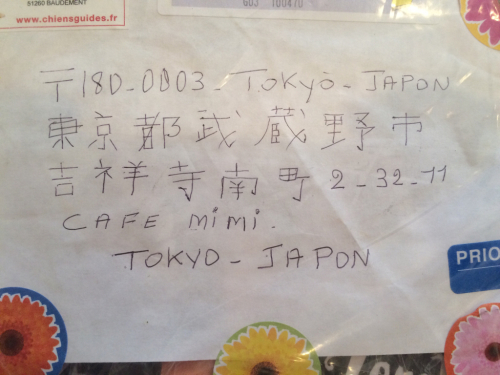 51260 BAUDEMENT
www.chiensguides.fr
603 100470
〒180-0003-TOKYO-JAPON
東京都武蔵野市
吉祥寺南町2-32-11
CAFE MiMi.
TOKYO-JAPON
PRIO